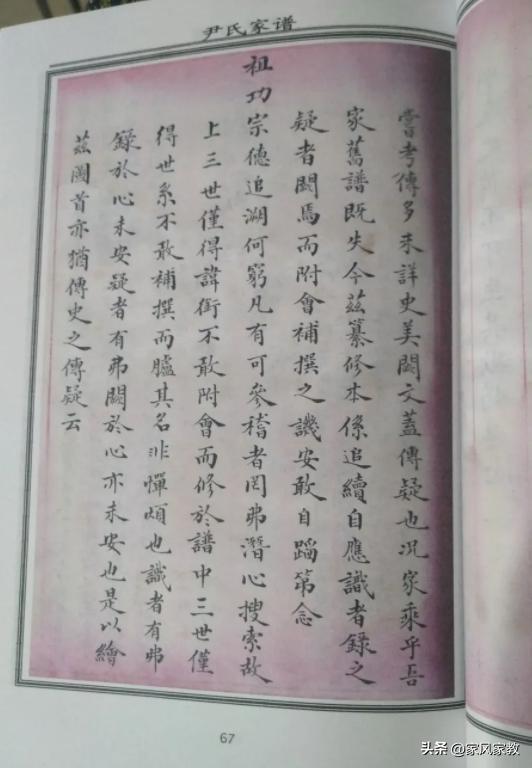 尹氏家谱
嘗考傳多未詳史美闕文蓋傳疑也况家乘乎吾
家舊譜既失今茲纂修本係追續自應識者錄之
疑者闕焉而附會補撰之譏安敢自蹈第念
祖功宗德追溯何窮凡有可參稽者罔弗潛心搜索故
上三世僅得諱銜不敢附會而修於譜中三世僅
得世系不敢補撰而臚其名非憚煩也識者有弗
錄於心未安疑者有弗闕於心亦未安也是以繪
茲圖首亦猶傳史之傳疑云
67
头条 @家风家教